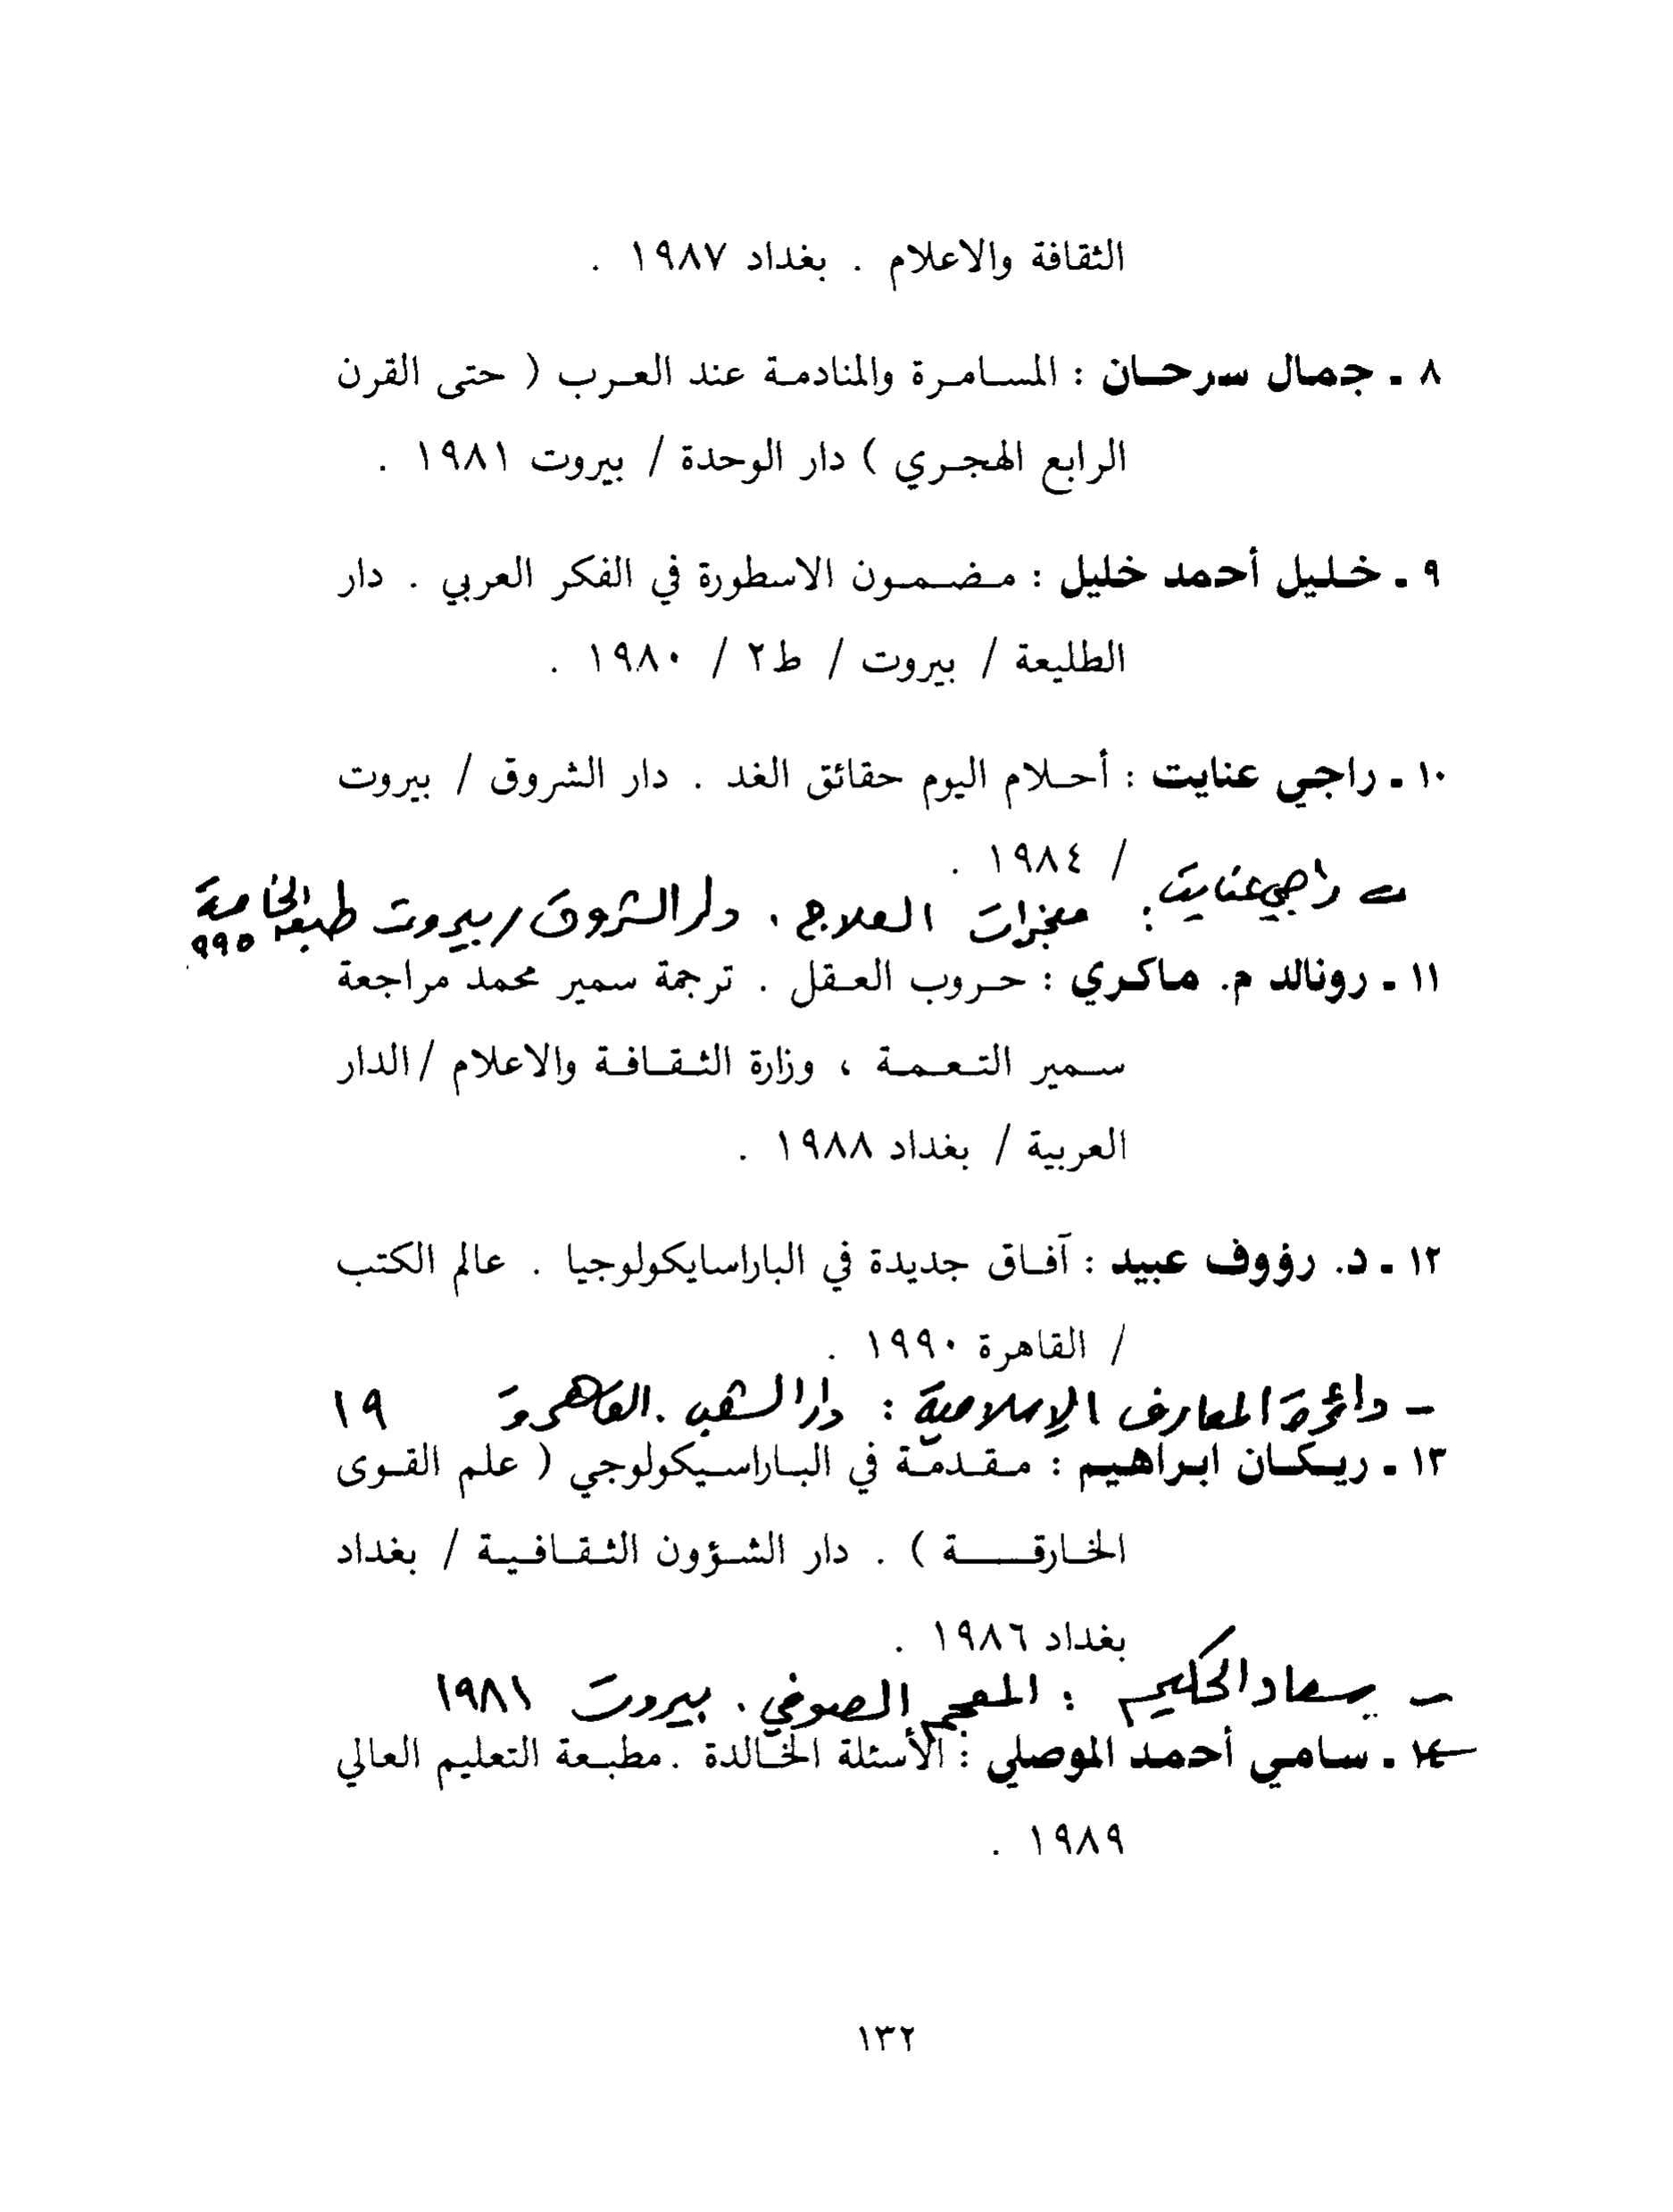 الثقافة والاعلام . بغداد ١٩٨٧ .
٨ - جمال سرحان : المسامرة والمنادمة عند العرب ( حتى القرن
الرابع الهجري ) دار الوحدة / بيروت ١٩٨١ .
٩ - خليل أحمد خليل : مضمون الاسطورة في الفكر العربي . دار
الطليعة / بيروت / ط٢ / ١٩٨٠ .
١٠ - راجي عنايت : أحلام اليوم حقائق الغد . دار الشروق / بيروت
/ ١٩٨٤ .
- راجي عنايت : معجزات العلاج . دار الشروق / بيروت طبعة الخامسة
٩٩٥
١١ - رونالد م. ماكري : حروب العقل . ترجمة سمير محمد مراجعة
سمير التعمة ، وزارة الثقافة والاعلام / الدار
العربية / بغداد ١٩٨٨ .
١٢ - د. رؤوف عبيد : آفاق جديدة في الباراسايكولوجيا . عالم الكتب
/ القاهرة ١٩٩٠ .
- دائرة المعارف الإسلامية : دار الشعب . القاهرة ١٩
١٣ - ريكان ابراهيم : مقدمّة في الباراسيكولوجي ( علم القوى
الخارقة ) . دار الشؤون الثقافية / بغداد
بغداد ١٩٨٦ .
- سعاد الحكيم : المعجم الصوفي . بيروت ١٩٨١
١٤ - سامي أحمد الموصلي : الأسئلة الخالدة . مطبعة التعليم العالي
١٩٨٩ .
١٣٢